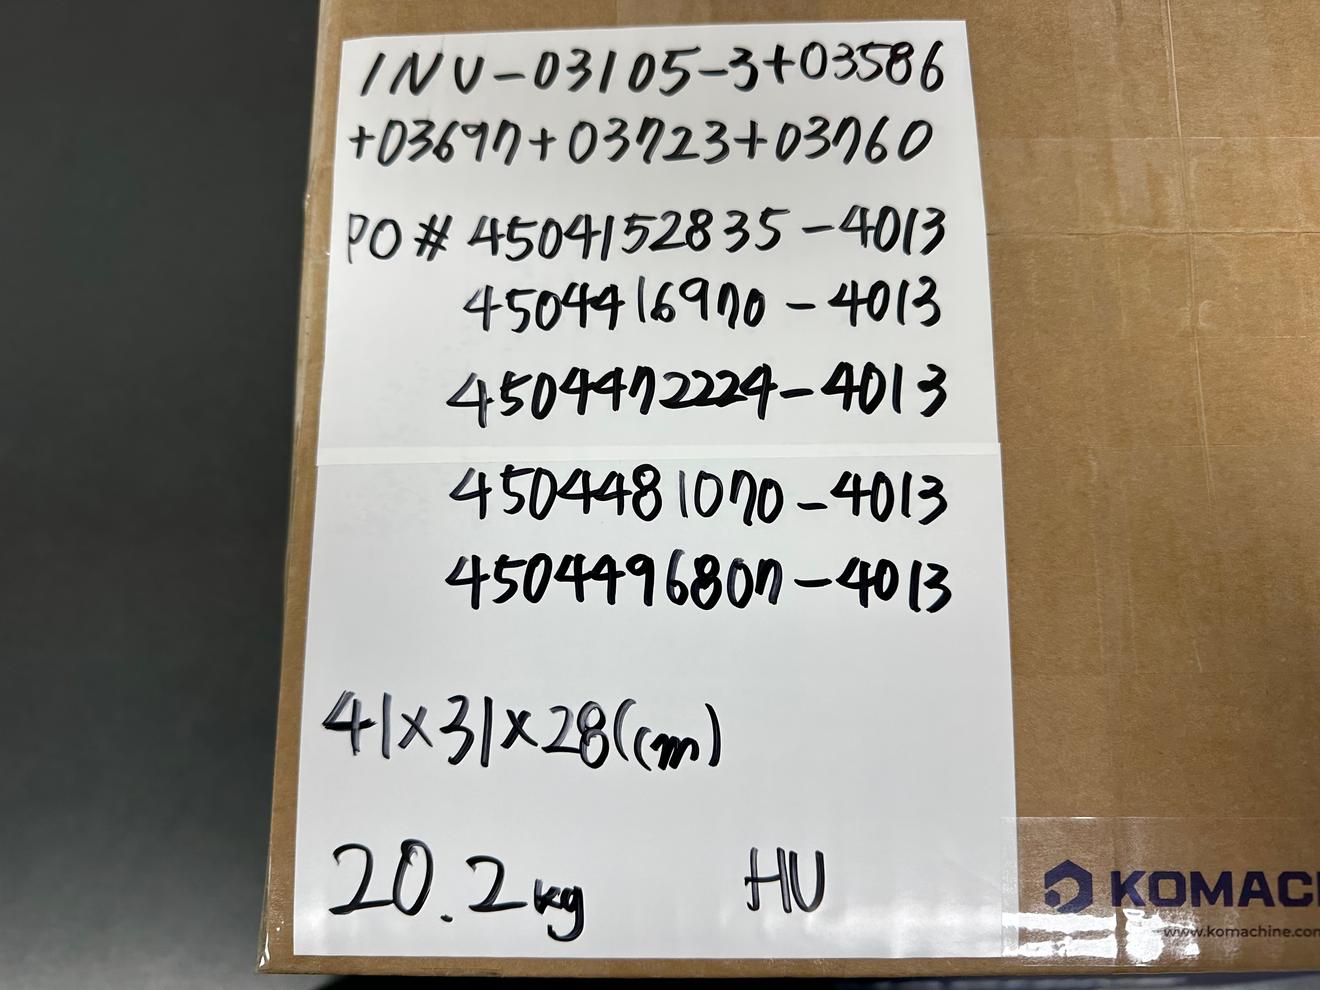 INV-03105-3+03586
+03697+03723+03760
PO# 4504152835-4013
4504416970-4013
4504472224-4013
4504481070-4013
4504496807-4013
41x31x28(cm)
20.2kg HU
KOMACH
www.komachine.com